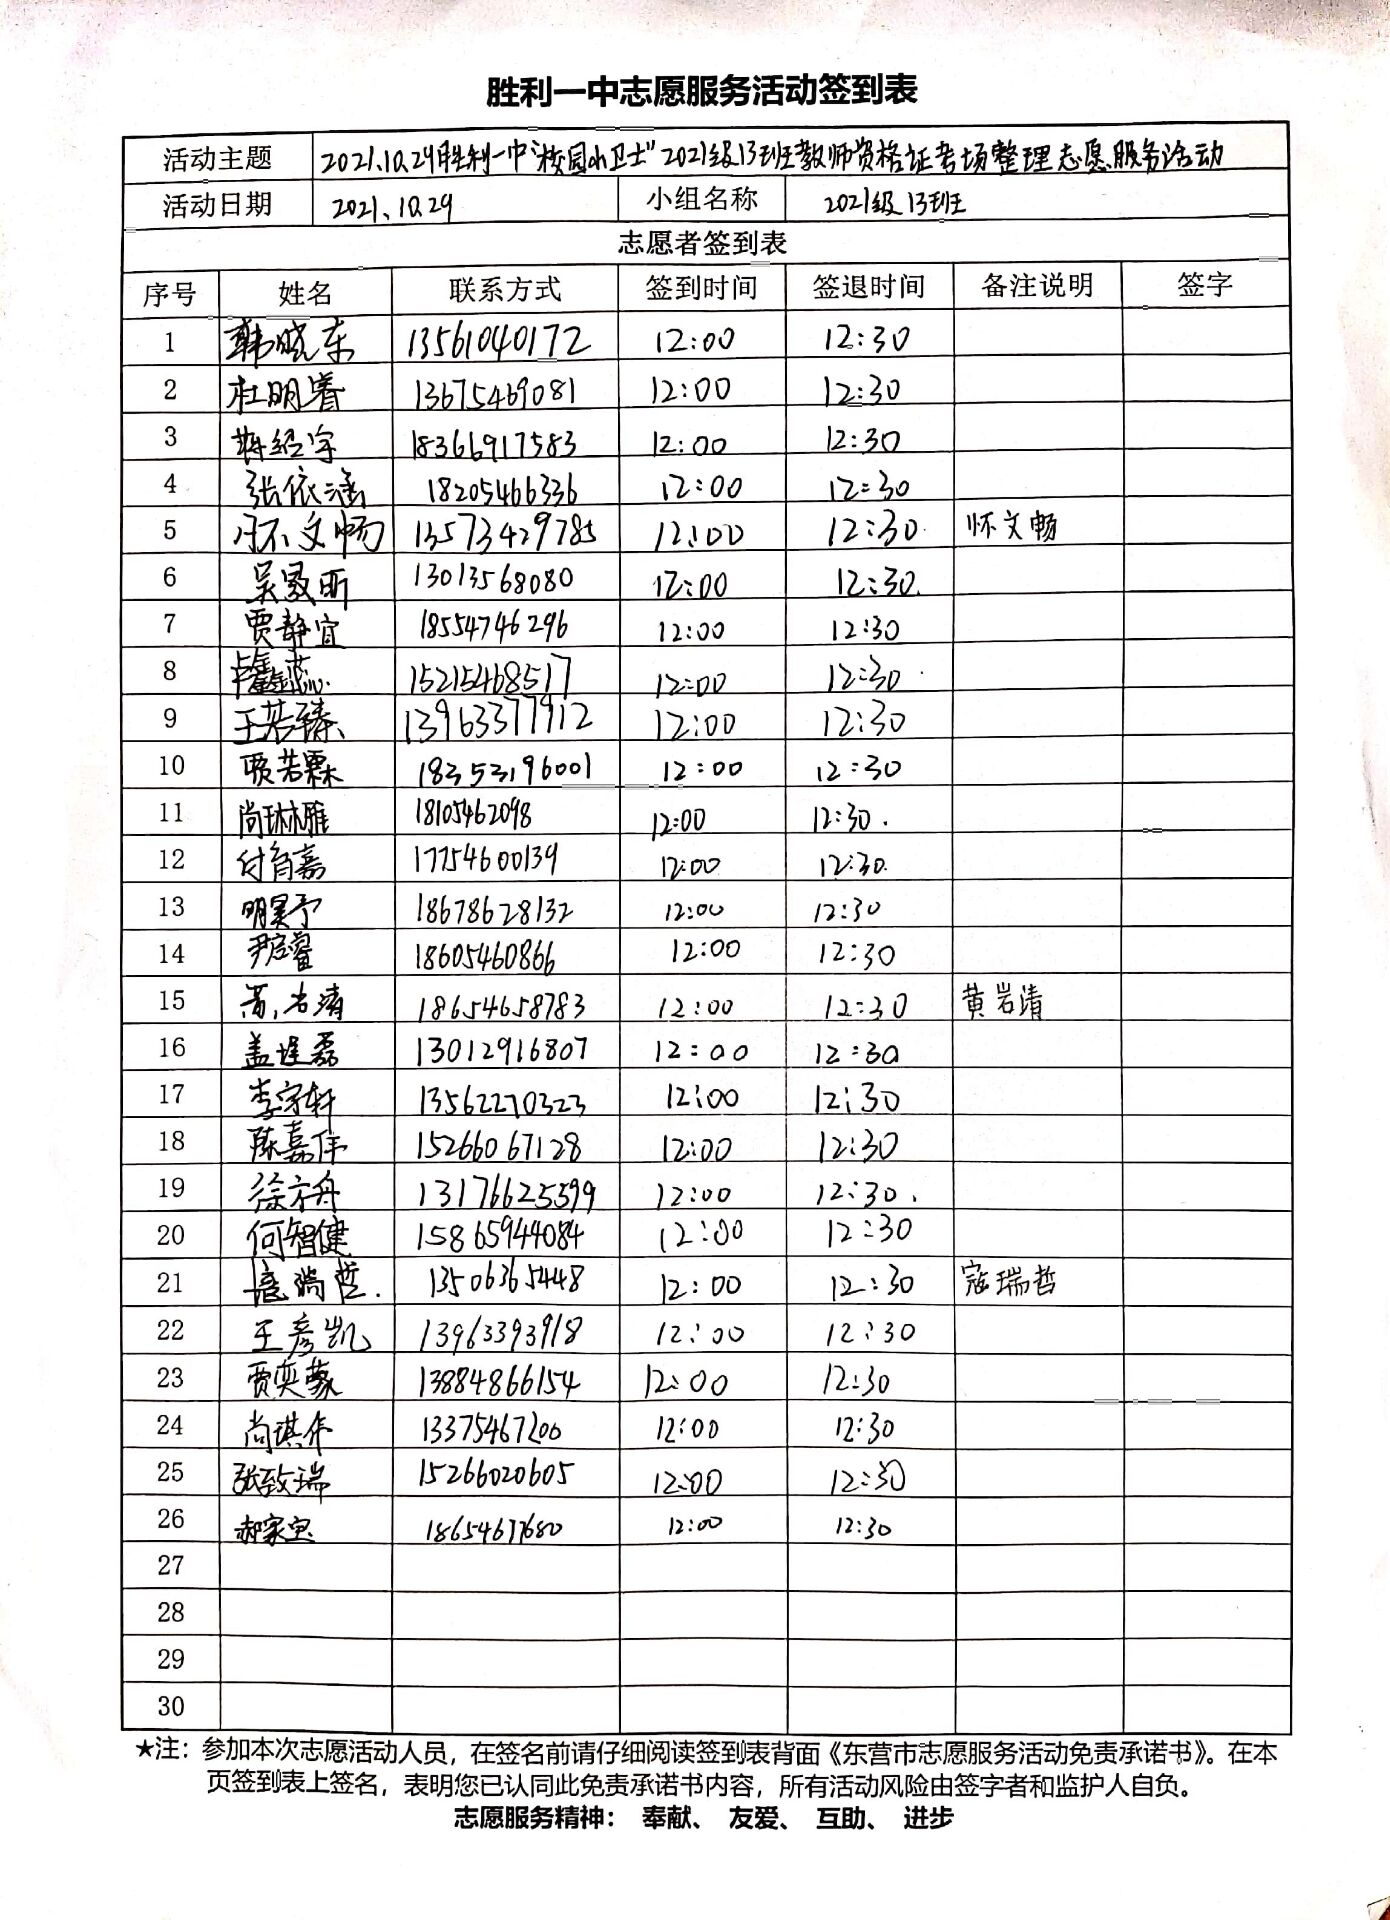 胜利一中志愿服务活动签到表
活动主题 2021.10.29胜利一中"校园小卫士"2021级13班教师资格证考场整理志愿服务活动
活动日期 2021.10.29 小组名称 2021级13班
志愿者签到表
序号 姓名 联系方式 签到时间 签退时间 备注说明 签字
1 韩晓东 13561040172 12:00 12:30
2 杜明睿 13675469081 12:00 12:30
3 蒋经宇 18366917583 12:00 12:30
4 张依涵 18205466336 12:00 12:30
5 怀文畅 13573429785 12:00 12:30 怀文畅
6 昕 13013568080 12:00 12:30
7 贾静宜 18554746296 12:00 12:30
8 15215468517 12:00 12:30
9 王若臻 13963377912 12:00 12:30
10 贾若霖 18353196001 12:00 12:30
11 尚琳雅 18105462098 12:00 12:30
12 付育嘉 17754600139 12:00 12:30
13 明昊予 18678628132 12:00 12:30
14 尹睿 18605460866 12:00 12:30
15 黄岩清 18654658783 12:00 12:30 黄岩清
16 盖堤磊 13012916807 12:00 12:30
17 李宇轩 13562270323 12:00 12:30
18 陈嘉伟 15266067128 12:00 12:30
19 徐方舟 13176625599 12:00 12:30
20 何智健 15865944084 12:00 12:30
21 寇瑞哲 13506365448 12:00 12:30 寇瑞哲
22 王彦凯 13963393918 12:00 12:30
23 贾奕蒙 13884866154 12:00 12:30
24 尚琪 13375467200 12:00 12:30
25 张致瑞 15266020605 12:00 12:30
26 郝家宝 18654677680 12:00 12:30
27
28
29
30
★注：参加本次志愿活动人员，在签名前请仔细阅读签到表背面《东营市志愿服务活动免责承诺书》。在本
页签到表上签名，表明您已认同此免责承诺书内容，所有活动风险由签字者和监护人自负。
志愿服务精神： 奉献、 友爱、 互助、 进步